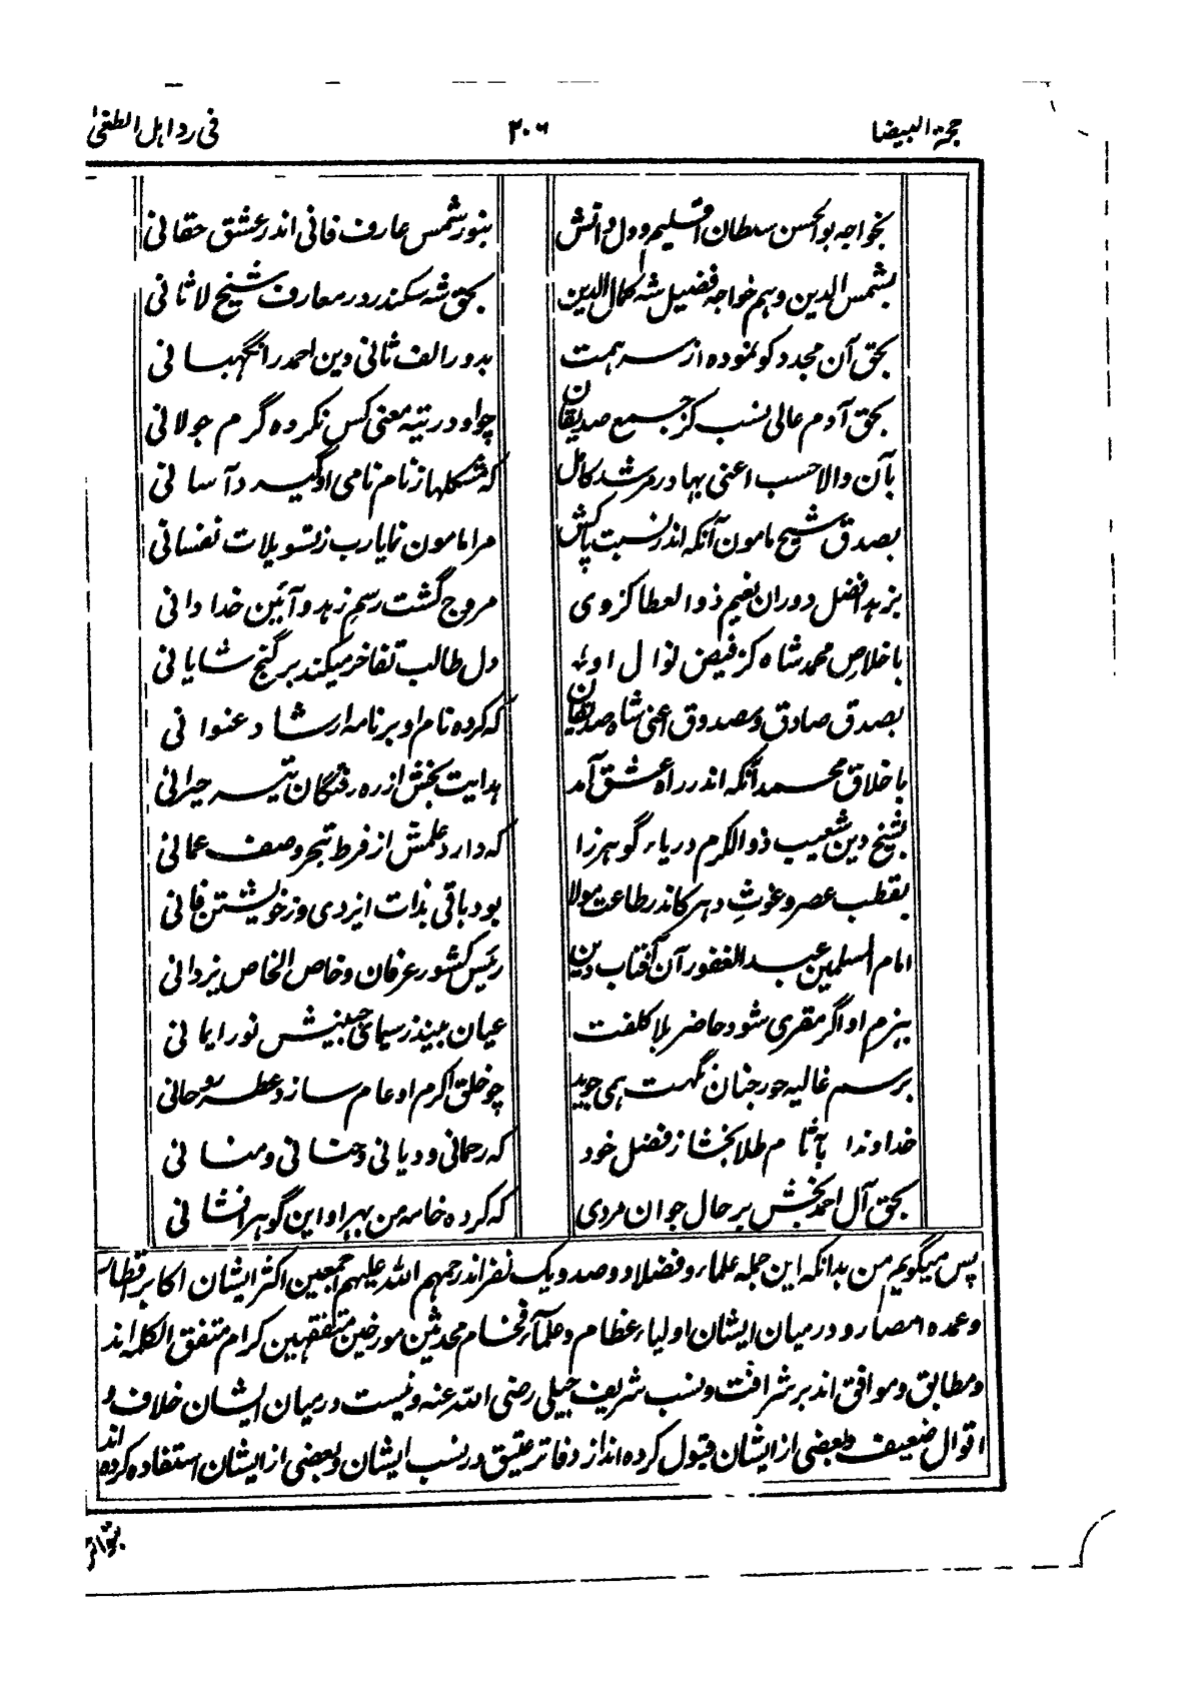 حجة البيضا ۲۰۶ فى رد اہل الطغىٰ
بخواجہ بوالحسن سلطان اقلیم دل و دانش بنور شمس عارف فانی اندر عشق حقانی
بشمس الدین و ہم خواجہ فضیل شہ کمال الدین بحق شہ سکندر در معارف شیخ لاثانی
بحق آن مجدد کو نمودہ از سر ہمت بدور الف ثانی دین احمد را نگہبانی
بحق آدم عالی نسب کز جمع صدیقان چو او در تیہ معنی کس نکردہ گرم جولانی
بآن والا حسب اعنی بہادر مرشد کامل کہ مشکلہا ز نام نامی او گیرد آسانی
بصدق شیخ مامون آنکہ اندر نسبت پاکش مرا مامون نما یارب ز تسویلات نفسانی
بزہد افضل دوران نعیم ذوالعطا کزوی مروج گشت رسم زہد و آئین خدادانی
باخلاص محمد شاہ کز فیض نوال او دل طالب تفاخر میکند بر گنج شایانی
بصدق صادق و مصدوق اعنی شاہ صدیقان کہ کردہ نام او بر نامہ ارشاد عنوانی
باخلاق محمد آنکہ اندر راہ عشق آمد ہدایت بخش از رہ رفتگان تیہ حیرانی
بشیخ دین شعیب ذوالکرم دریاء گوہرزا کہ دارد علمش از فرط تبحر وصف عمانی
بقطب عصر و غوث دہر کاندر طاعت مولا بود باقی بذات ایزدی وز خویشتن فانی
امام المسلمین عبد الغفور آن آفتاب دین رئیس کشور عرفان و خاص الخاص یزدانی
ببزم او اگر مقری شود حاضر بلا کلفت عیان بیند ز سیمای جبینش نور ایمانی
برسم غالیہ حور جنان نگہت ہمی جوید چو خلق اکرم او عام سازد عطر روحانی
خداوندا بآثام طلا بخشا ز فضل خود کہ رحمانی و دیانی و حنانی و منانی
بحق آل احمد بخش بر حال جوانمردی کہ کردہ خامہ من بہر او این گوہر افشانی
پس میگویم من بدانکہ این جملہ علماء و فضلا دو صد و یک نفراند رحمہم اللہ علیہم اجمعین اکثر ایشان اکابر اقطار
و عمدہ امصار و درمیان ایشان اولیاء عظام و علمآء فخام محدثین مورخین متفقہین کرام متفق الکلمہ اند
و مطابق و موافق اند بر شرافت و نسب شریف جیلی رضی اللہ عنہ و نیست درمیان ایشان خلاف و
اقوال ضعیف و بعضی از ایشان قبول کردہ اند از دفاتر عتیق در نسب ایشان و بعضی از ایشان استفادہ کردہ اند